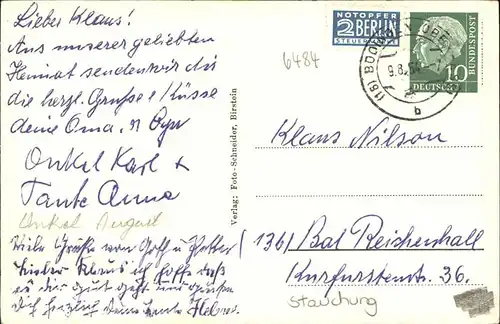 Lieber Klaus!
Aus unserer geliebten
Heimat senden wir dir
die herzl. Grüße & Küsse
deine Oma, n Opa
Onkel Karl &
Tante Anna
Onkel August
Viele Grüße von Goth u
Lieber Klaus ich hoffe daß
es dir gut geht und
dich herzlich deine Tante
Verlag: Foto-Schneider, Birstein
NOTOPFER
2 BERLIN
STEUERMARKE
6484
(16)
9.8.54
b
DEUTSCHE
BUNDESPOST
10
Klaus Nilson
(13b) Bad Reichenhall
Kurfürstenstr. 36.
Stauchung